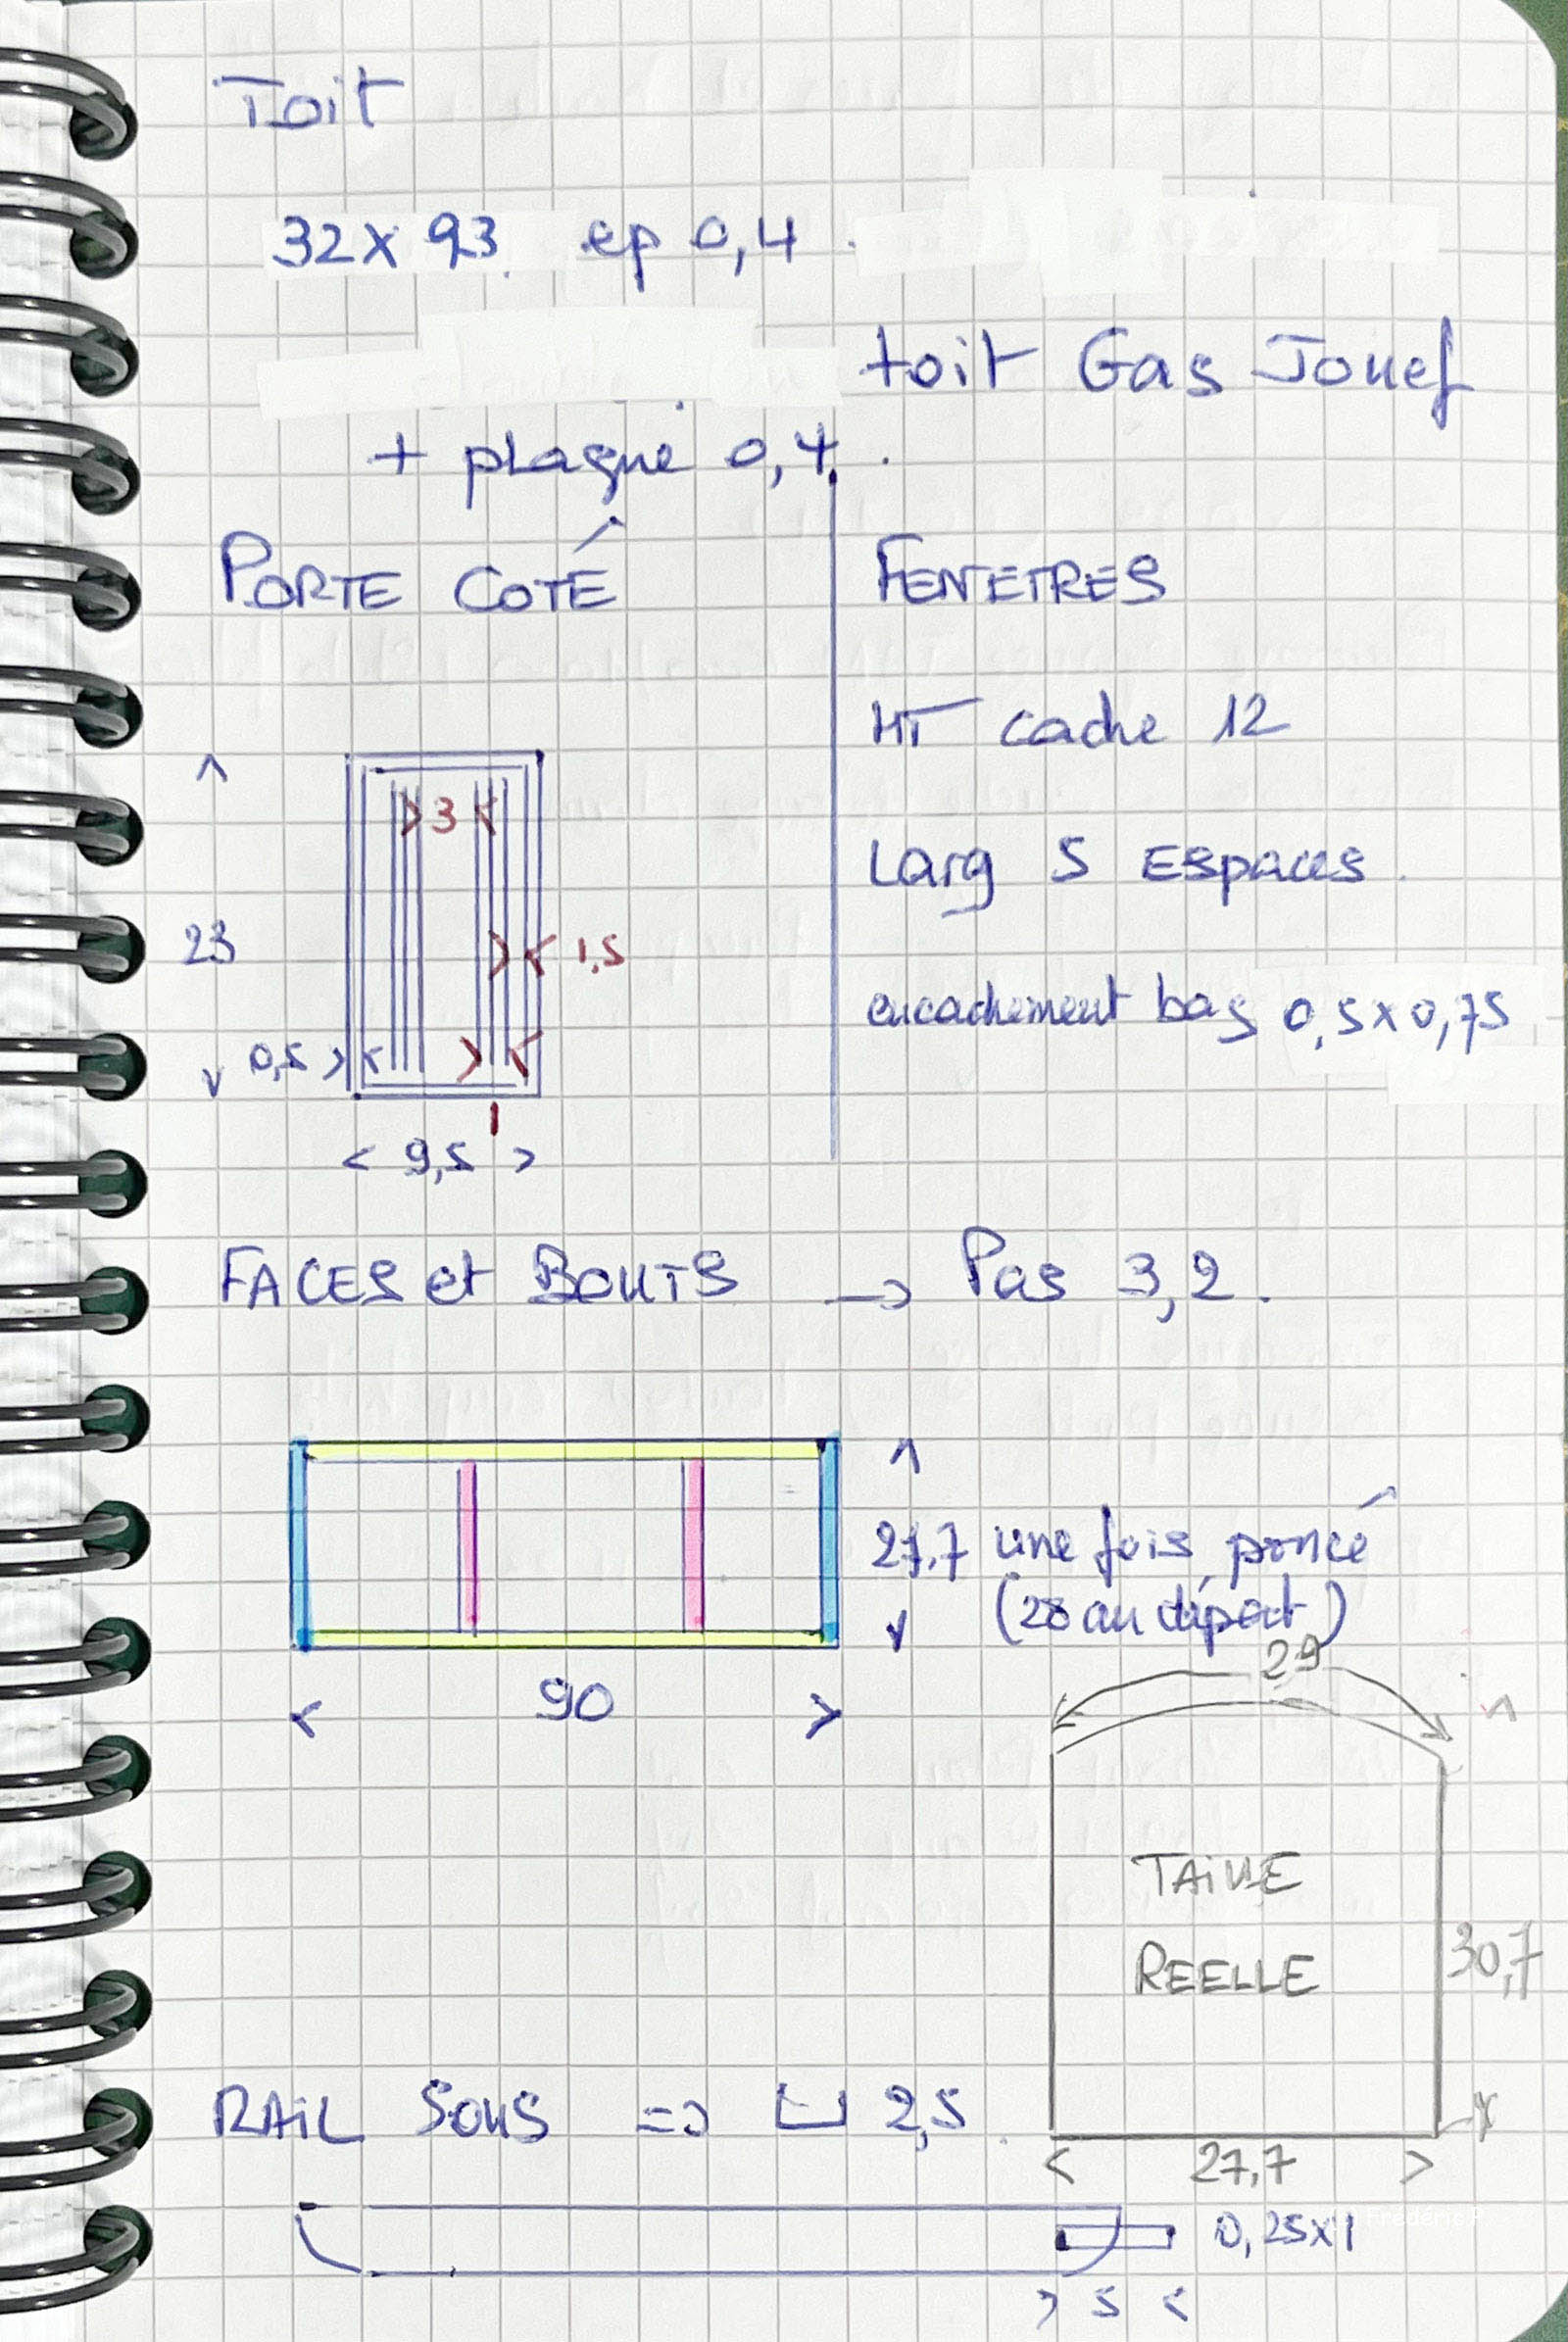 Toit
32 x 93 ep 0,4.
toit Gas Jouef
+ plaque 0,4.
PORTE COTÉ
3
23
1,5
0,5
1
< 9,5 >
FENETRES
HT cache 12
Larg 5 Espaces.
encachement bas 0,5 x 0,75
FACES et BOUTS → Pas 3,2.
27,7 une fois poncé
(28 au départ)
< 90 >
29
TAILLE
REELLE
30,7
< 27,7 >
RAIL SOUS => ⊔ 2,5.
0,25x1
> 5 <